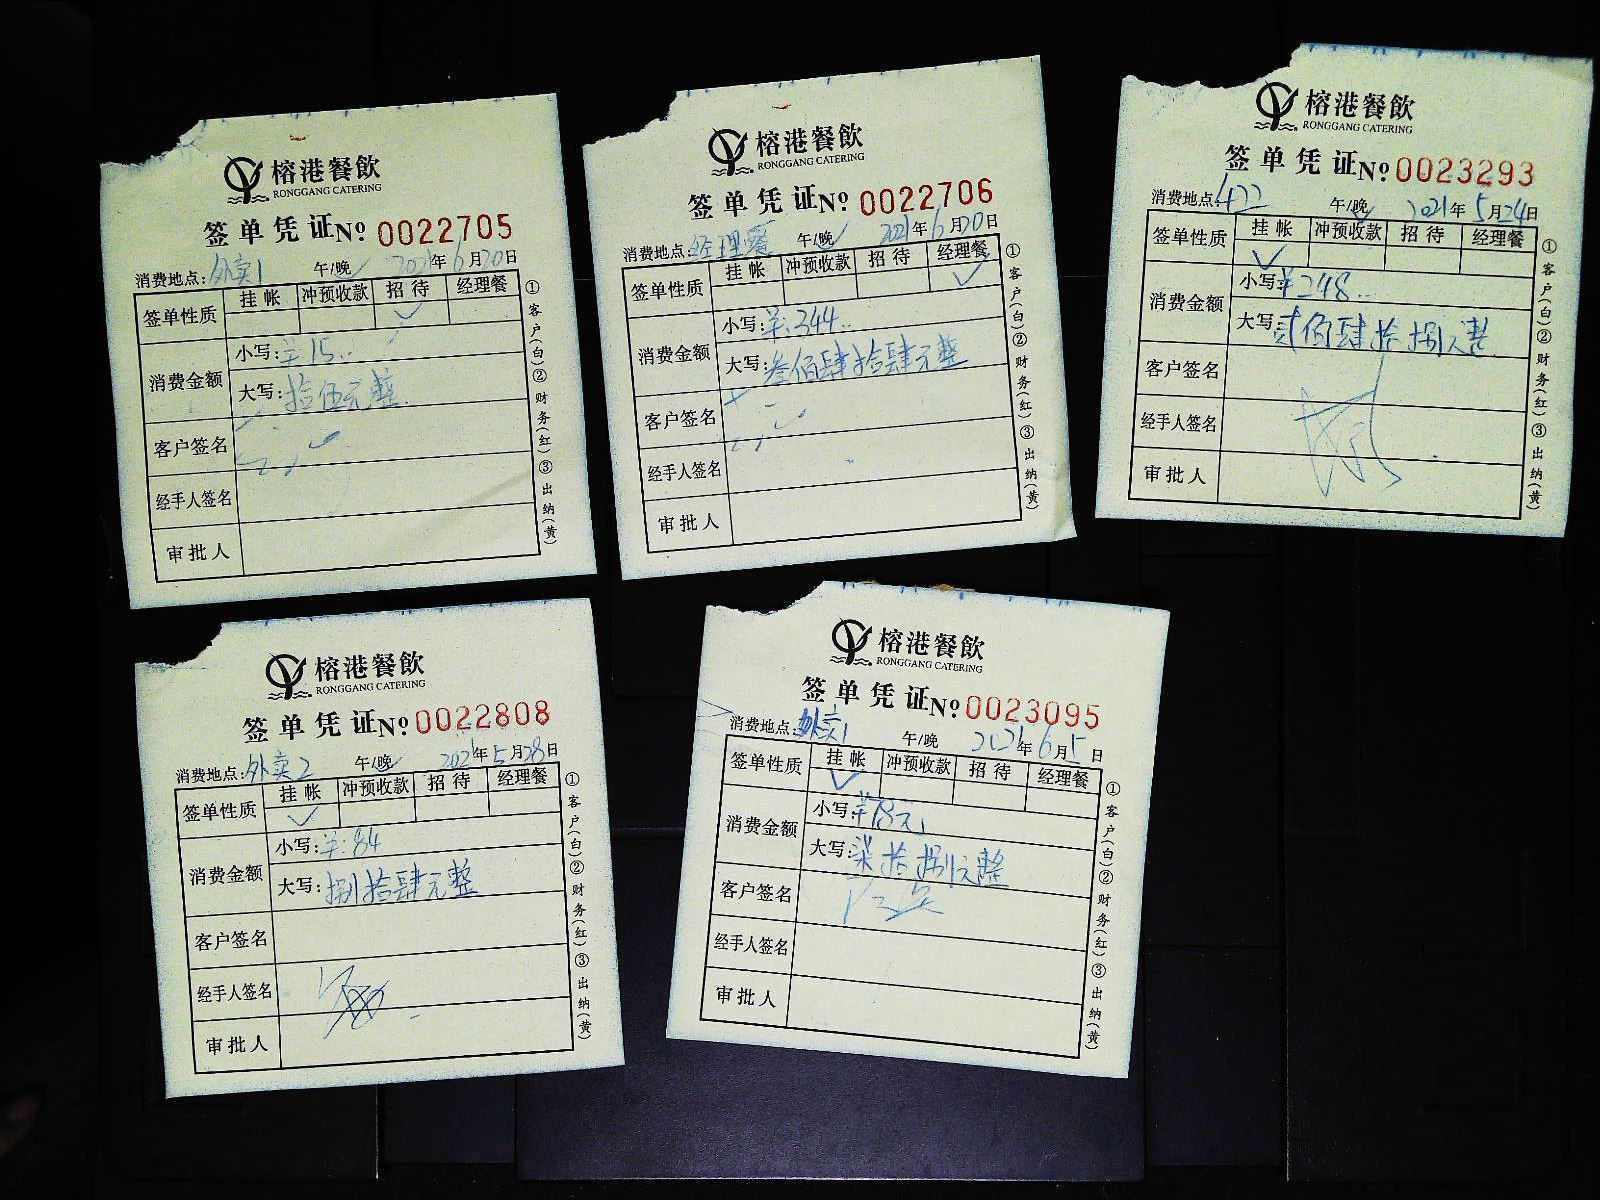 榕港餐飲
RONGGANG CATERING
签单凭证 № 0022705
消费地点: 外卖1 午/晚 2021年6月20日
签单性质 挂帐 冲预收款 招待 经理餐
消费金额
小写: ¥15..
大写: 拾伍元整
客户签名
经手人签名
审批人
①客户(白)②财务(红)③出纳(黄)
榕港餐飲
RONGGANG CATERING
签单凭证 № 0022706
消费地点: 经理餐 午/晚 2021年6月20日
签单性质 挂帐 冲预收款 招待 经理餐
消费金额
小写: ¥:344..
大写: 叁佰肆拾肆元整
客户签名
经手人签名
审批人
①客户(白)②财务(红)③出纳(黄)
榕港餐飲
RONGGANG CATERING
签单凭证 № 0023293
消费地点: 422 午/晚 2021年5月24日
签单性质 挂帐 冲预收款 招待 经理餐
消费金额
小写: ¥248..
大写: 贰佰肆拾捌元整
客户签名
经手人签名
审批人
①客户(白)②财务(红)③出纳(黄)
榕港餐飲
RONGGANG CATERING
签单凭证 № 0022808
消费地点: 外卖2 午/晚 2021年5月28日
签单性质 挂帐 冲预收款 招待 经理餐
消费金额
小写: ¥:84
大写: 捌拾肆元整
客户签名
经手人签名
审批人
①客户(白)②财务(红)③出纳(黄)
榕港餐飲
RONGGANG CATERING
签单凭证 № 0023095
消费地点: 外卖1 午/晚 2021年6月5日
签单性质 挂帐 冲预收款 招待 经理餐
消费金额
小写: ¥78元
大写: 柒拾捌元整
客户签名
经手人签名
审批人
①客户(白)②财务(红)③出纳(黄)